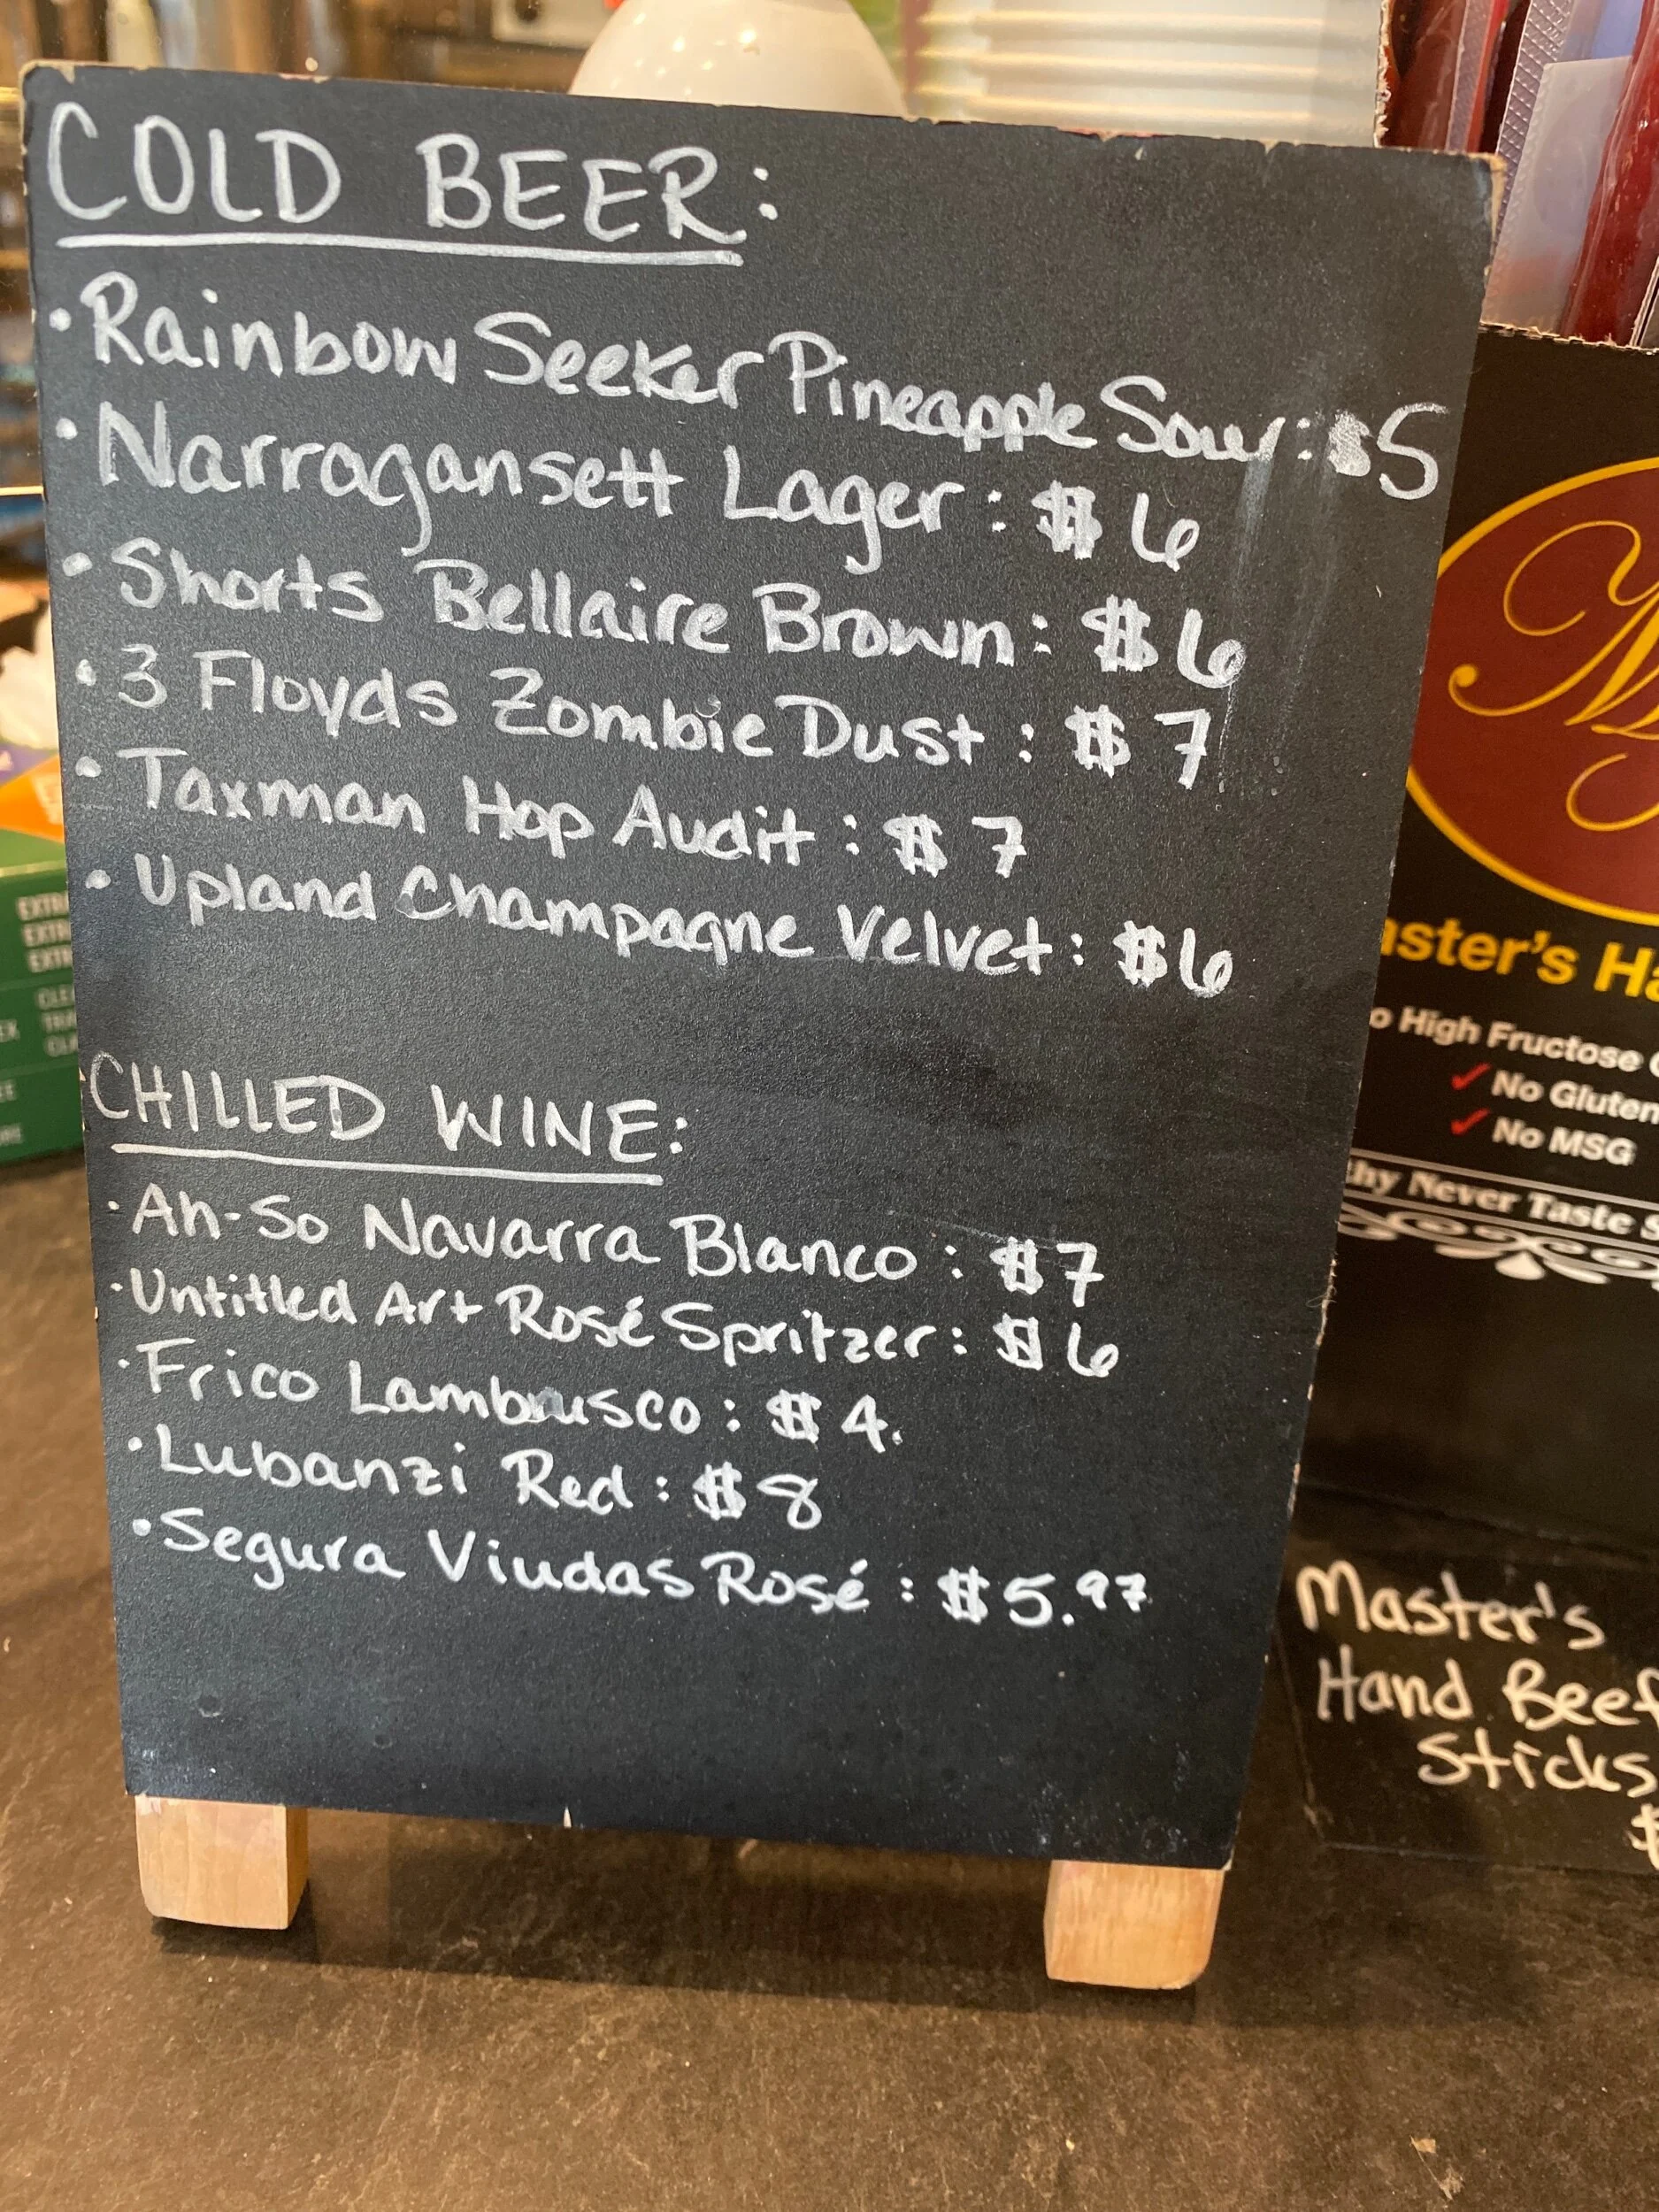 COLD BEER:
• Rainbow Seeker Pineapple Sour: $5
• Narragansett Lager: $6
• Shorts Bellaire Brown: $6
• 3 Floyds Zombie Dust: $7
• Taxman Hop Audit: $7
• Upland Champagne Velvet: $6
CHILLED WINE:
• Ah-So Navarra Blanco: $7
• Untitled Art Rosé Spritzer: $6
• Frico Lambrusco: $4.
• Lubanzi Red: $8
• Segura Viudas Rosé: $5.97
High Fructose
✓ No Gluten
✓ No MSG
Never Taste
Master's
Hand Beef
Sticks
$